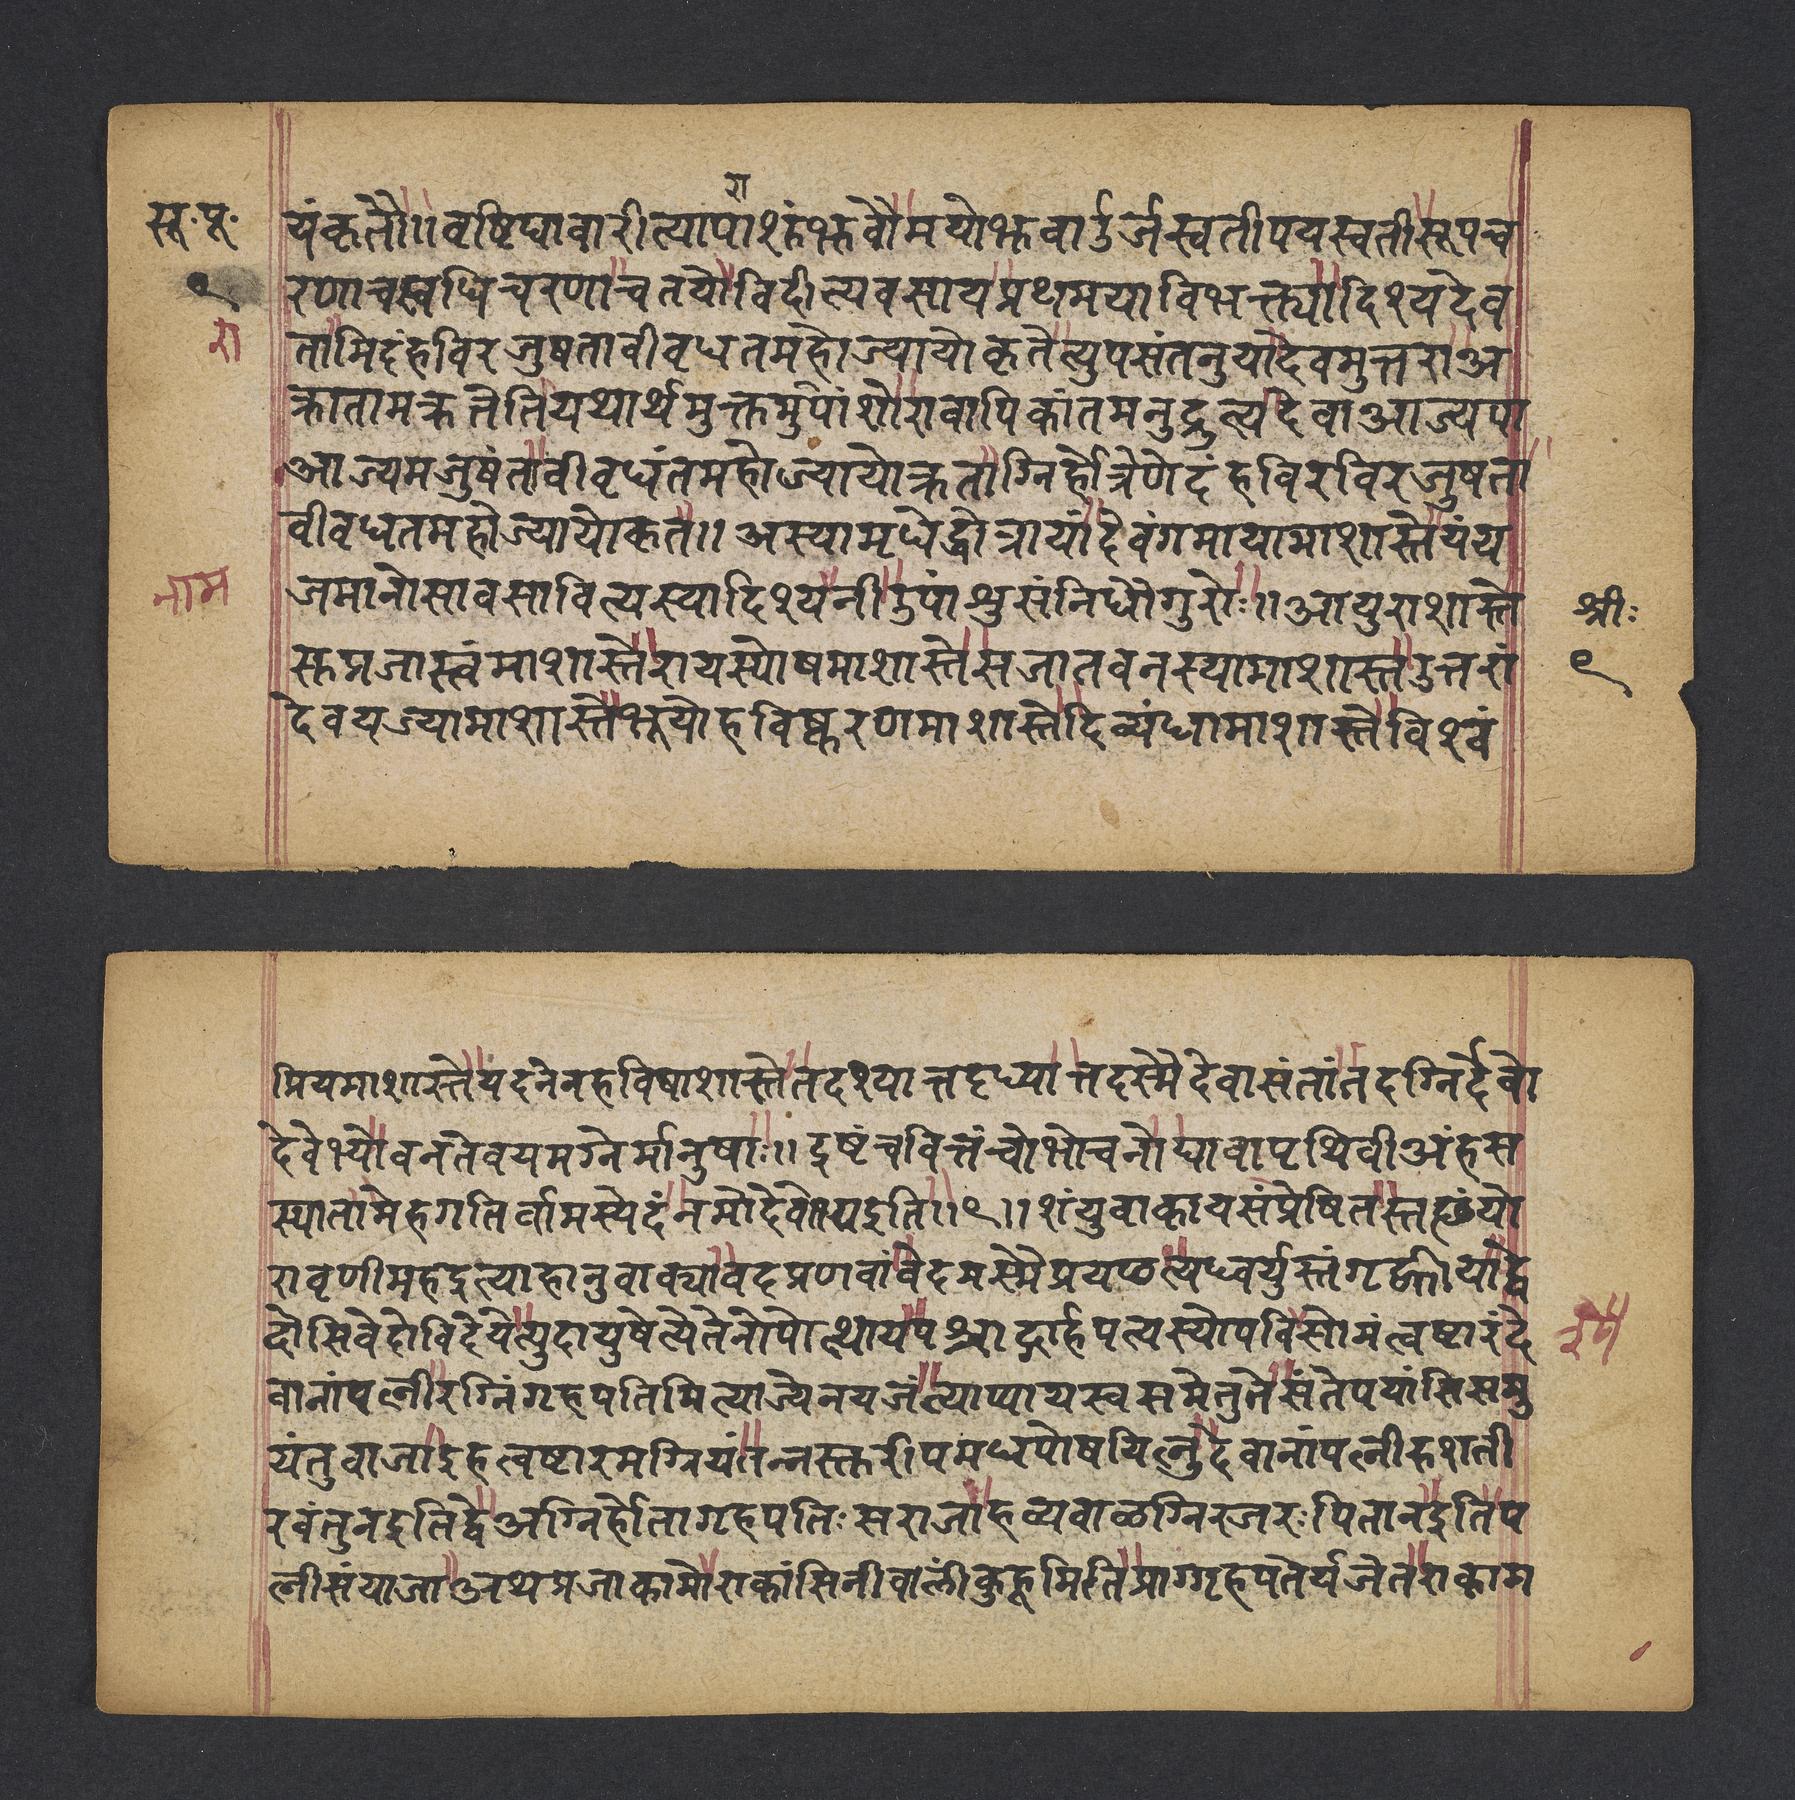 रा
सू॰पू॰ यंकृतौ॥वृष्टिद्यावारीत्यापाशंभुवौमयोभुवाऊर्जस्वतीपयस्वतीसूपच
९ रणाचस्वधिचरणाचतयोर्विदीत्यवसायप्रथमयाविभक्त्यादिश्यदेव
रा तामिदंहविरजुषतावीवृधतमहोज्यायोकृतेत्युपसंतनुयादेवमुत्तराअ
क्रातामक्रतेतियथार्थमुक्तमुपांशोरावापिकांतमनुद्रुत्यदेवाआज्यपा
आज्यमजुषंतावीवृधंतमहोज्यायोक्रताग्निर्होत्रेणेदंहविरविरजुषता
वीवृधतमहोज्यायोकृत॥अस्यामृधेद्धोत्रायांदेवंगमायामाशास्तेयंय
नाम जमानोसावसावित्यस्यादिश्यनीउपांशुसंनिधौगुरोः॥आयुराशास्ते श्रीः
सुप्रजास्त्वंमाशास्तेरायस्पोषमाशास्तेसजातवनस्यामाशास्तउत्तरां ९
देवयज्यामाशास्तेभूयोहविष्करणमाशास्तेदिव्यंधामाशास्तेविश्वं
प्रियमाशास्तेयदनेनहविषाशास्तेतदश्यात्तदृध्यात्तदस्मैदेवासंतांतदग्निर्देवो
देवेभ्योवनतेवयमग्नेर्मानुषाः॥इष्टंचवित्तंचोभोचनोद्यावापृथिवीअंहस
स्पातामेहगतिर्वामस्येदंनमोदेवेभ्यइति॥९॥शंयुवाकायसंप्रेषितस्तछंयो
रावृणीमहइत्याहानुवाक्यावदप्रणवांवेदमस्मैप्रयछत्यध्वर्युस्तंगृह्णीयाद्वे
दोसिवेदोविदेयेत्युदायुषेत्येतेनोपोत्थायपश्चाद्गार्हपत्यस्योपविसोमंत्वष्टारंदे
वानांपत्नीरग्निंगृहपतिमित्याज्येनयजंत्याप्यायस्वसमेतुतेसंतेपयांसिसमु
यंतुवाजाइहत्वष्टारमग्रियंतन्नस्तुरीपमधपोषयित्नुदेवानांपत्नीरुशती
रवंतुनइतिद्वेअग्निर्होतागृहपतिःसराजाहव्यवाळग्निरजरःपितानइतिप
त्नीसंयाजाअथप्रजाकामोराकांसिनीवालींकुहूमितिप्राग्गृहपतेर्यजेतराकाम